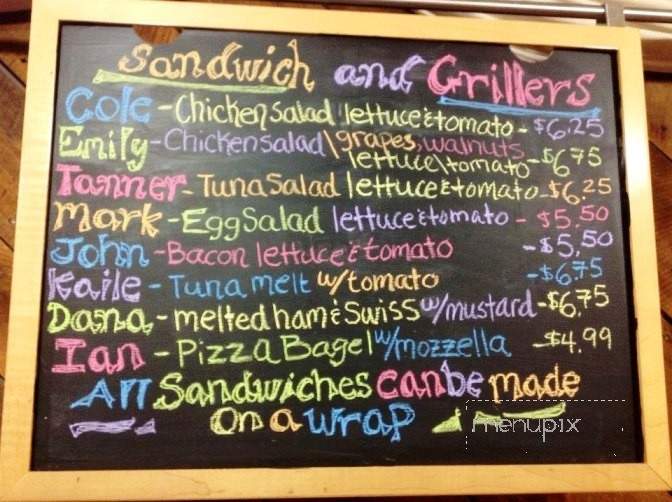 Sandwich and Grillers
Cole - Chicken Salad lettuce & tomato - $6.25
Emily - Chicken Salad \ grapes, walnuts
lettuce \ tomato - $6.75
Tanner - Tuna Salad lettuce & tomato - $6.25
Mark - Egg Salad lettuce & tomato - $5.50
John - Bacon lettuce & tomato - $5.50
Kaile - Tuna melt w/ tomato - $6.75
Dana - melted ham & Swiss w/ mustard - $6.75
Ian - Pizza Bagel w/ mozzella - $4.99
All Sandwiches can be made
on a wrap
menupix